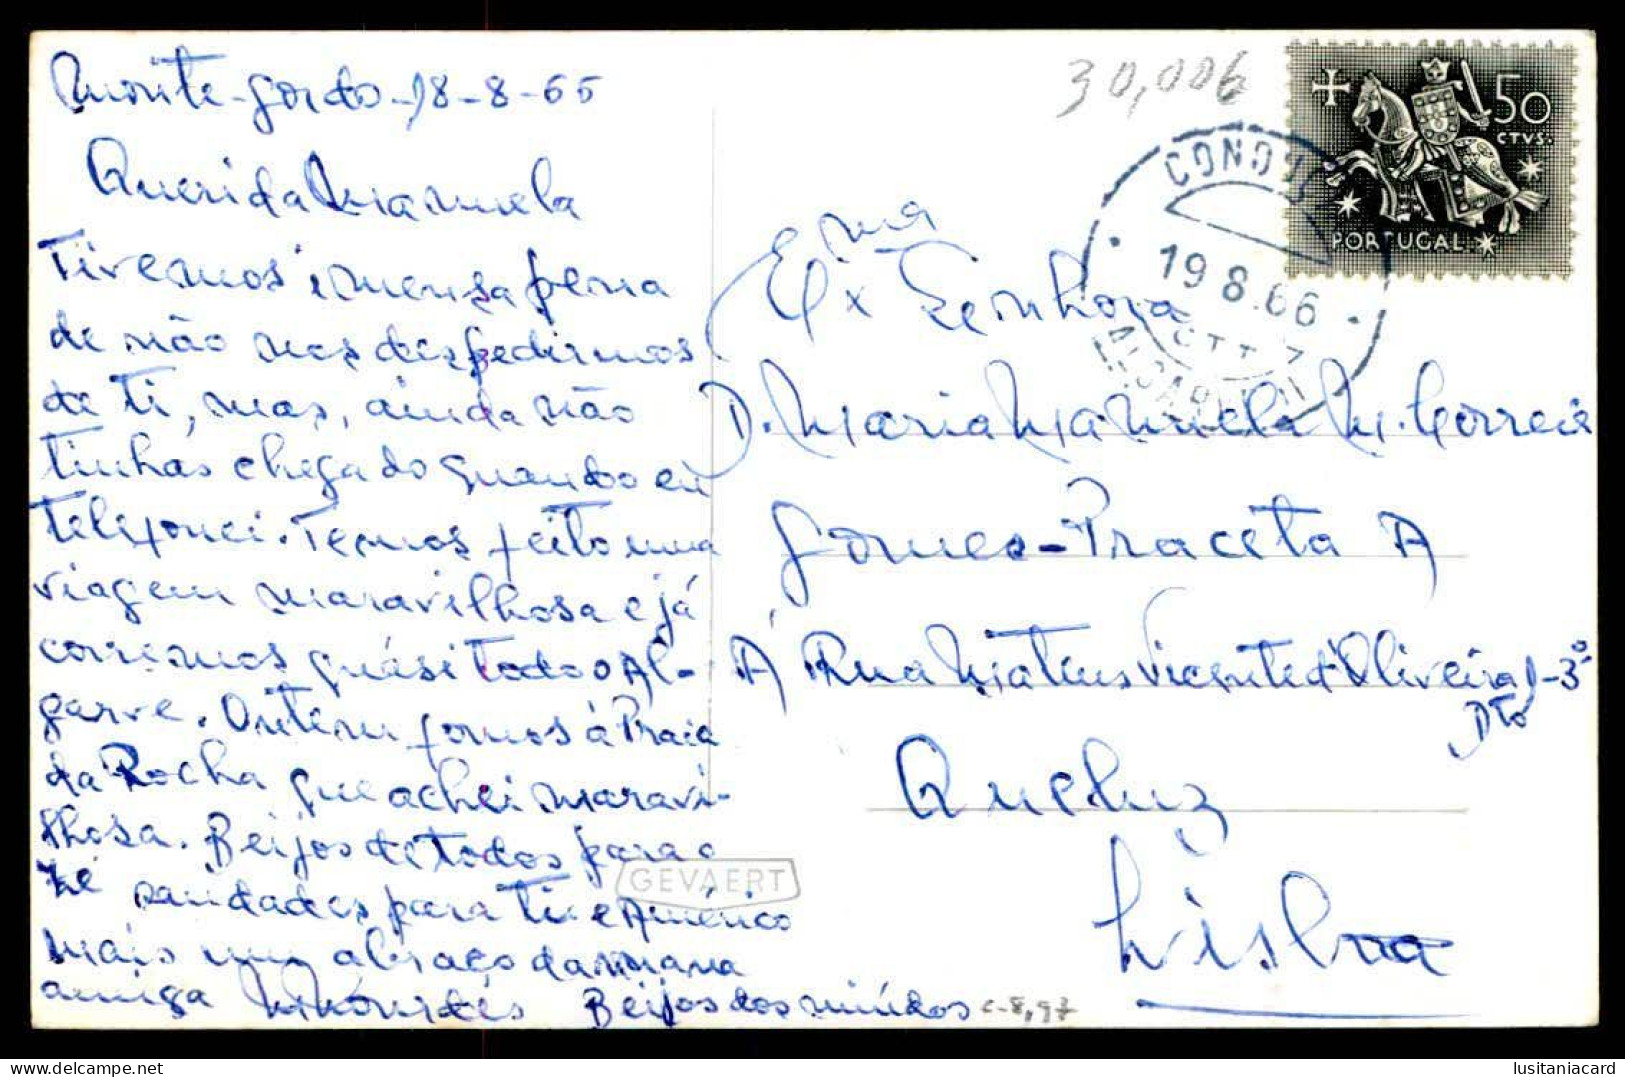 Monte-Gordo-18-8-66
Querida Manuela
Tivemos imensa pena
de não nos despedirmos
de ti, mas, ainda não
tinhas chegado quando eu
telefonei. Temos feito uma
viagem maravilhosa e já
corremos quási todo o Al-
garve. Ontem fomos á Praia
da Rocha que achei maravi-
lhosa. Beijos de todos para o
Zé saudades para ti e Américo
mais um abraço da mana
amiga Beijos dos miúdos
c-8,97
30,006
50
CTVS.
PORTUGAL
19 8.66
CTT
Ex ma Senhora
D. Maria Manuela M. Correia
Gomes-Praceta A
Á Rua Mateus Vicente d'Oliveira 1-3º
Dto
Queluz
Lisboa
GEVAERT
lusitaniacard